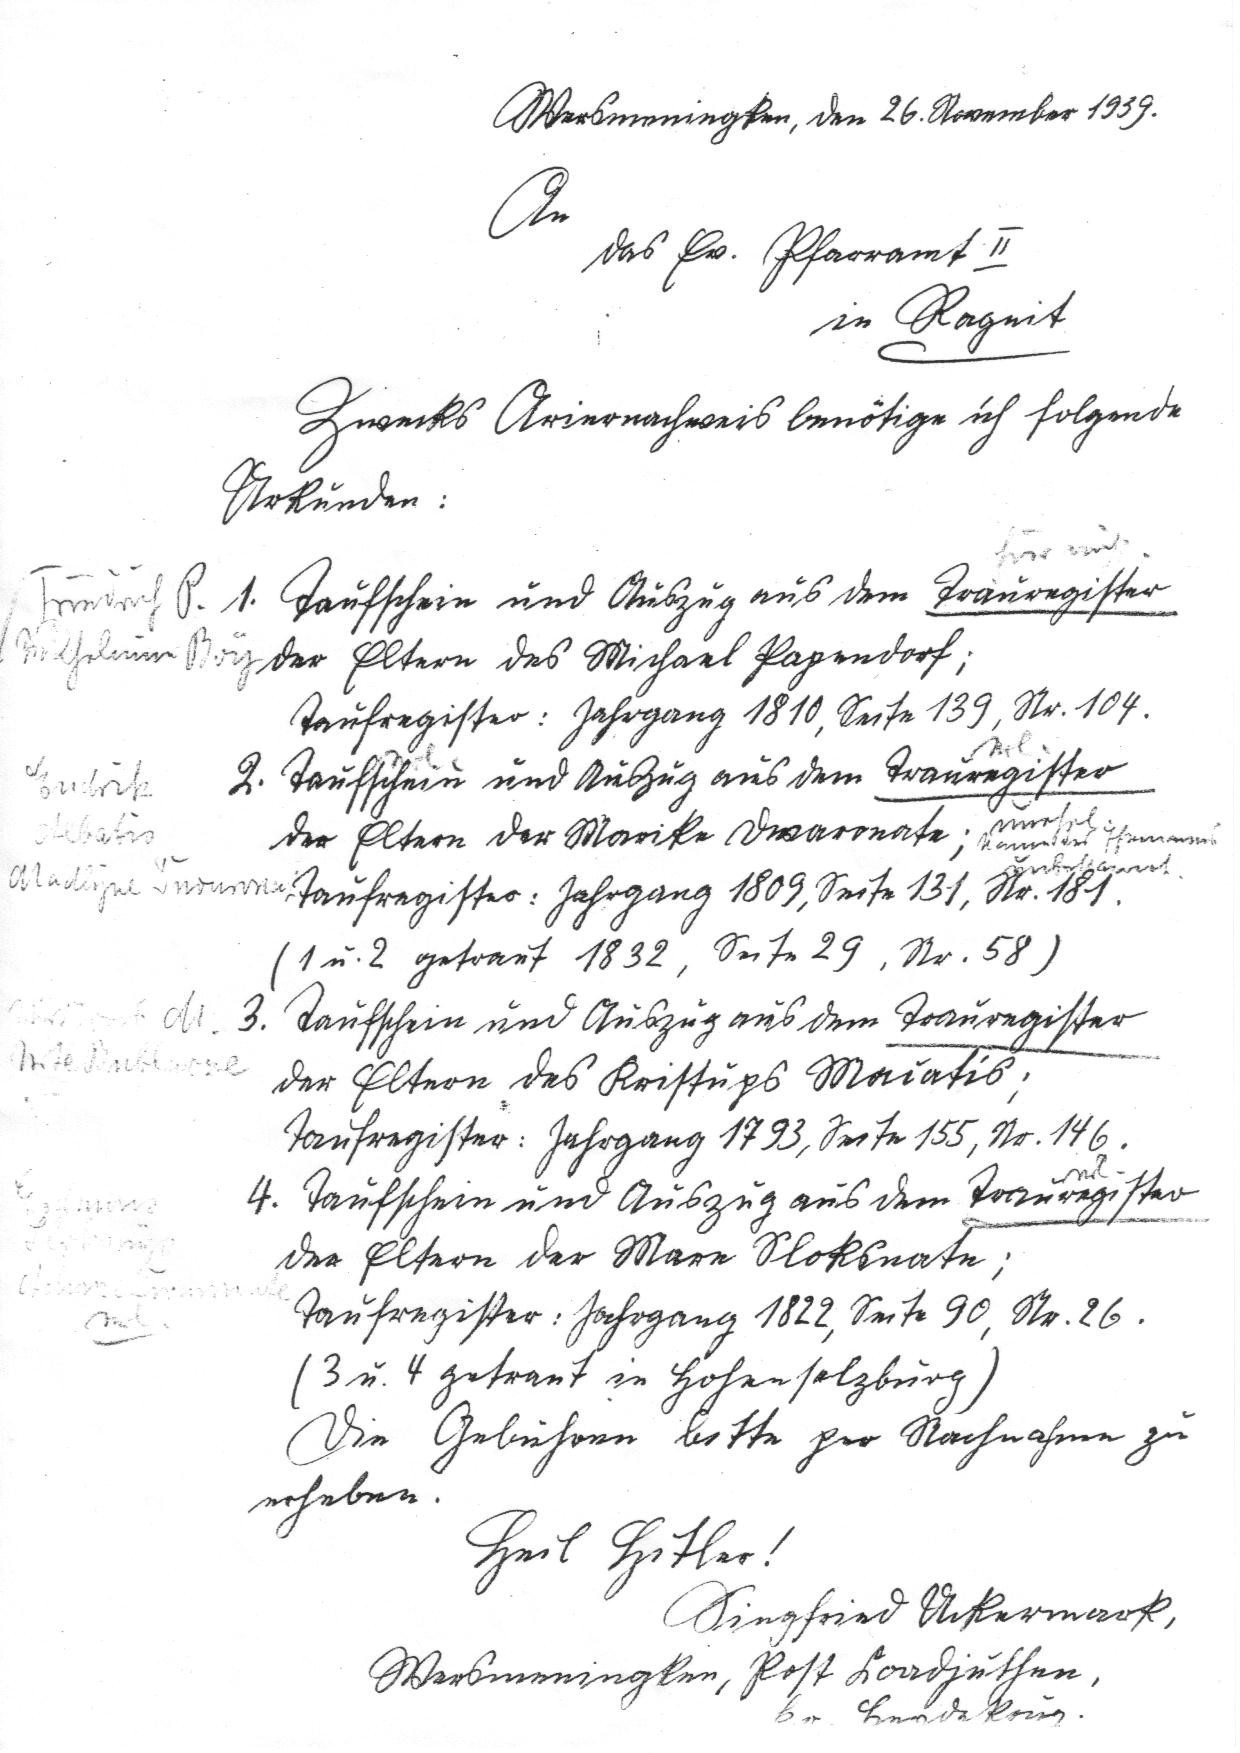 Wersmeningken, den 26. November 1939.
An
das Ev. Pfarramt II
in Ragnit
Zwecks Ariernachweis benötige ich folgende
Urkunden:
Friedrich P. 1. Taufschein und Auszug aus dem Trauregister
Wilhelmine der Eltern des Michael Papendorf;
Taufregister: Jahrgang 1810, Seite 139, Nr. 104.
Endrik 2. Taufschein und Auszug aus dem Trauregister
der Eltern der Marike Dwaronate;
Taufregister: Jahrgang 1809, Seite 131, Nr. 181.
(1 u. 2 getraut 1832, Seite 29, Nr. 58)
M. 3. Taufschein und Auszug aus dem Trauregister
der Eltern des Kristups Macatis;
Taufregister: Jahrgang 1793, Seite 155, Nr. 146.
4. Taufschein und Auszug aus dem Trauregister
der Eltern der Mare Sloksnate;
Taufregister: Jahrgang 1822, Seite 90, Nr. 26.
(3 u. 4 getraut in Hohensalzburg)
Die Gebühren bitte per Nachnahme zu
erheben.
Heil Hitler!
Siegfried Uckermark,
Wersmeningken, Post Coadjuthen,
Kr. Heydekrug.